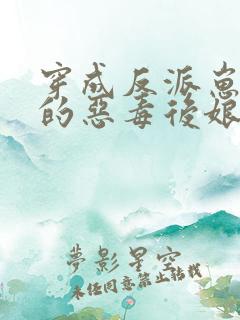 穿成反派崽
的惡毒後娘
夢影星空
未经同意禁止转载